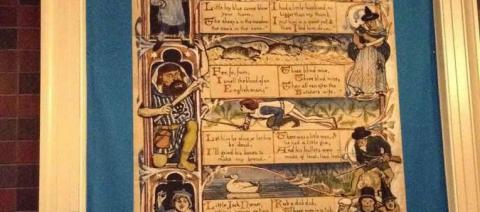 Little boy blue come blow
your horn,
The sheep's in the meadow
the cow's in the corn.
I had a little husband, no
bigger than my thumb,
I put him in a quart pot &
there I bid him drum.
Fee, fo, fum,
I smell the blood of an
English man;
Three blind mice,
Three blind mice,
They all ran after the
Butcher's wife.
Let him be alive or let him
be dead,
I'll grind his bones to
make my bread.
There was a little man, &
he had a little gun,
And his bullets were
made of lead, lead, lead.
Little Jack Horner,
Rub a dub dub,